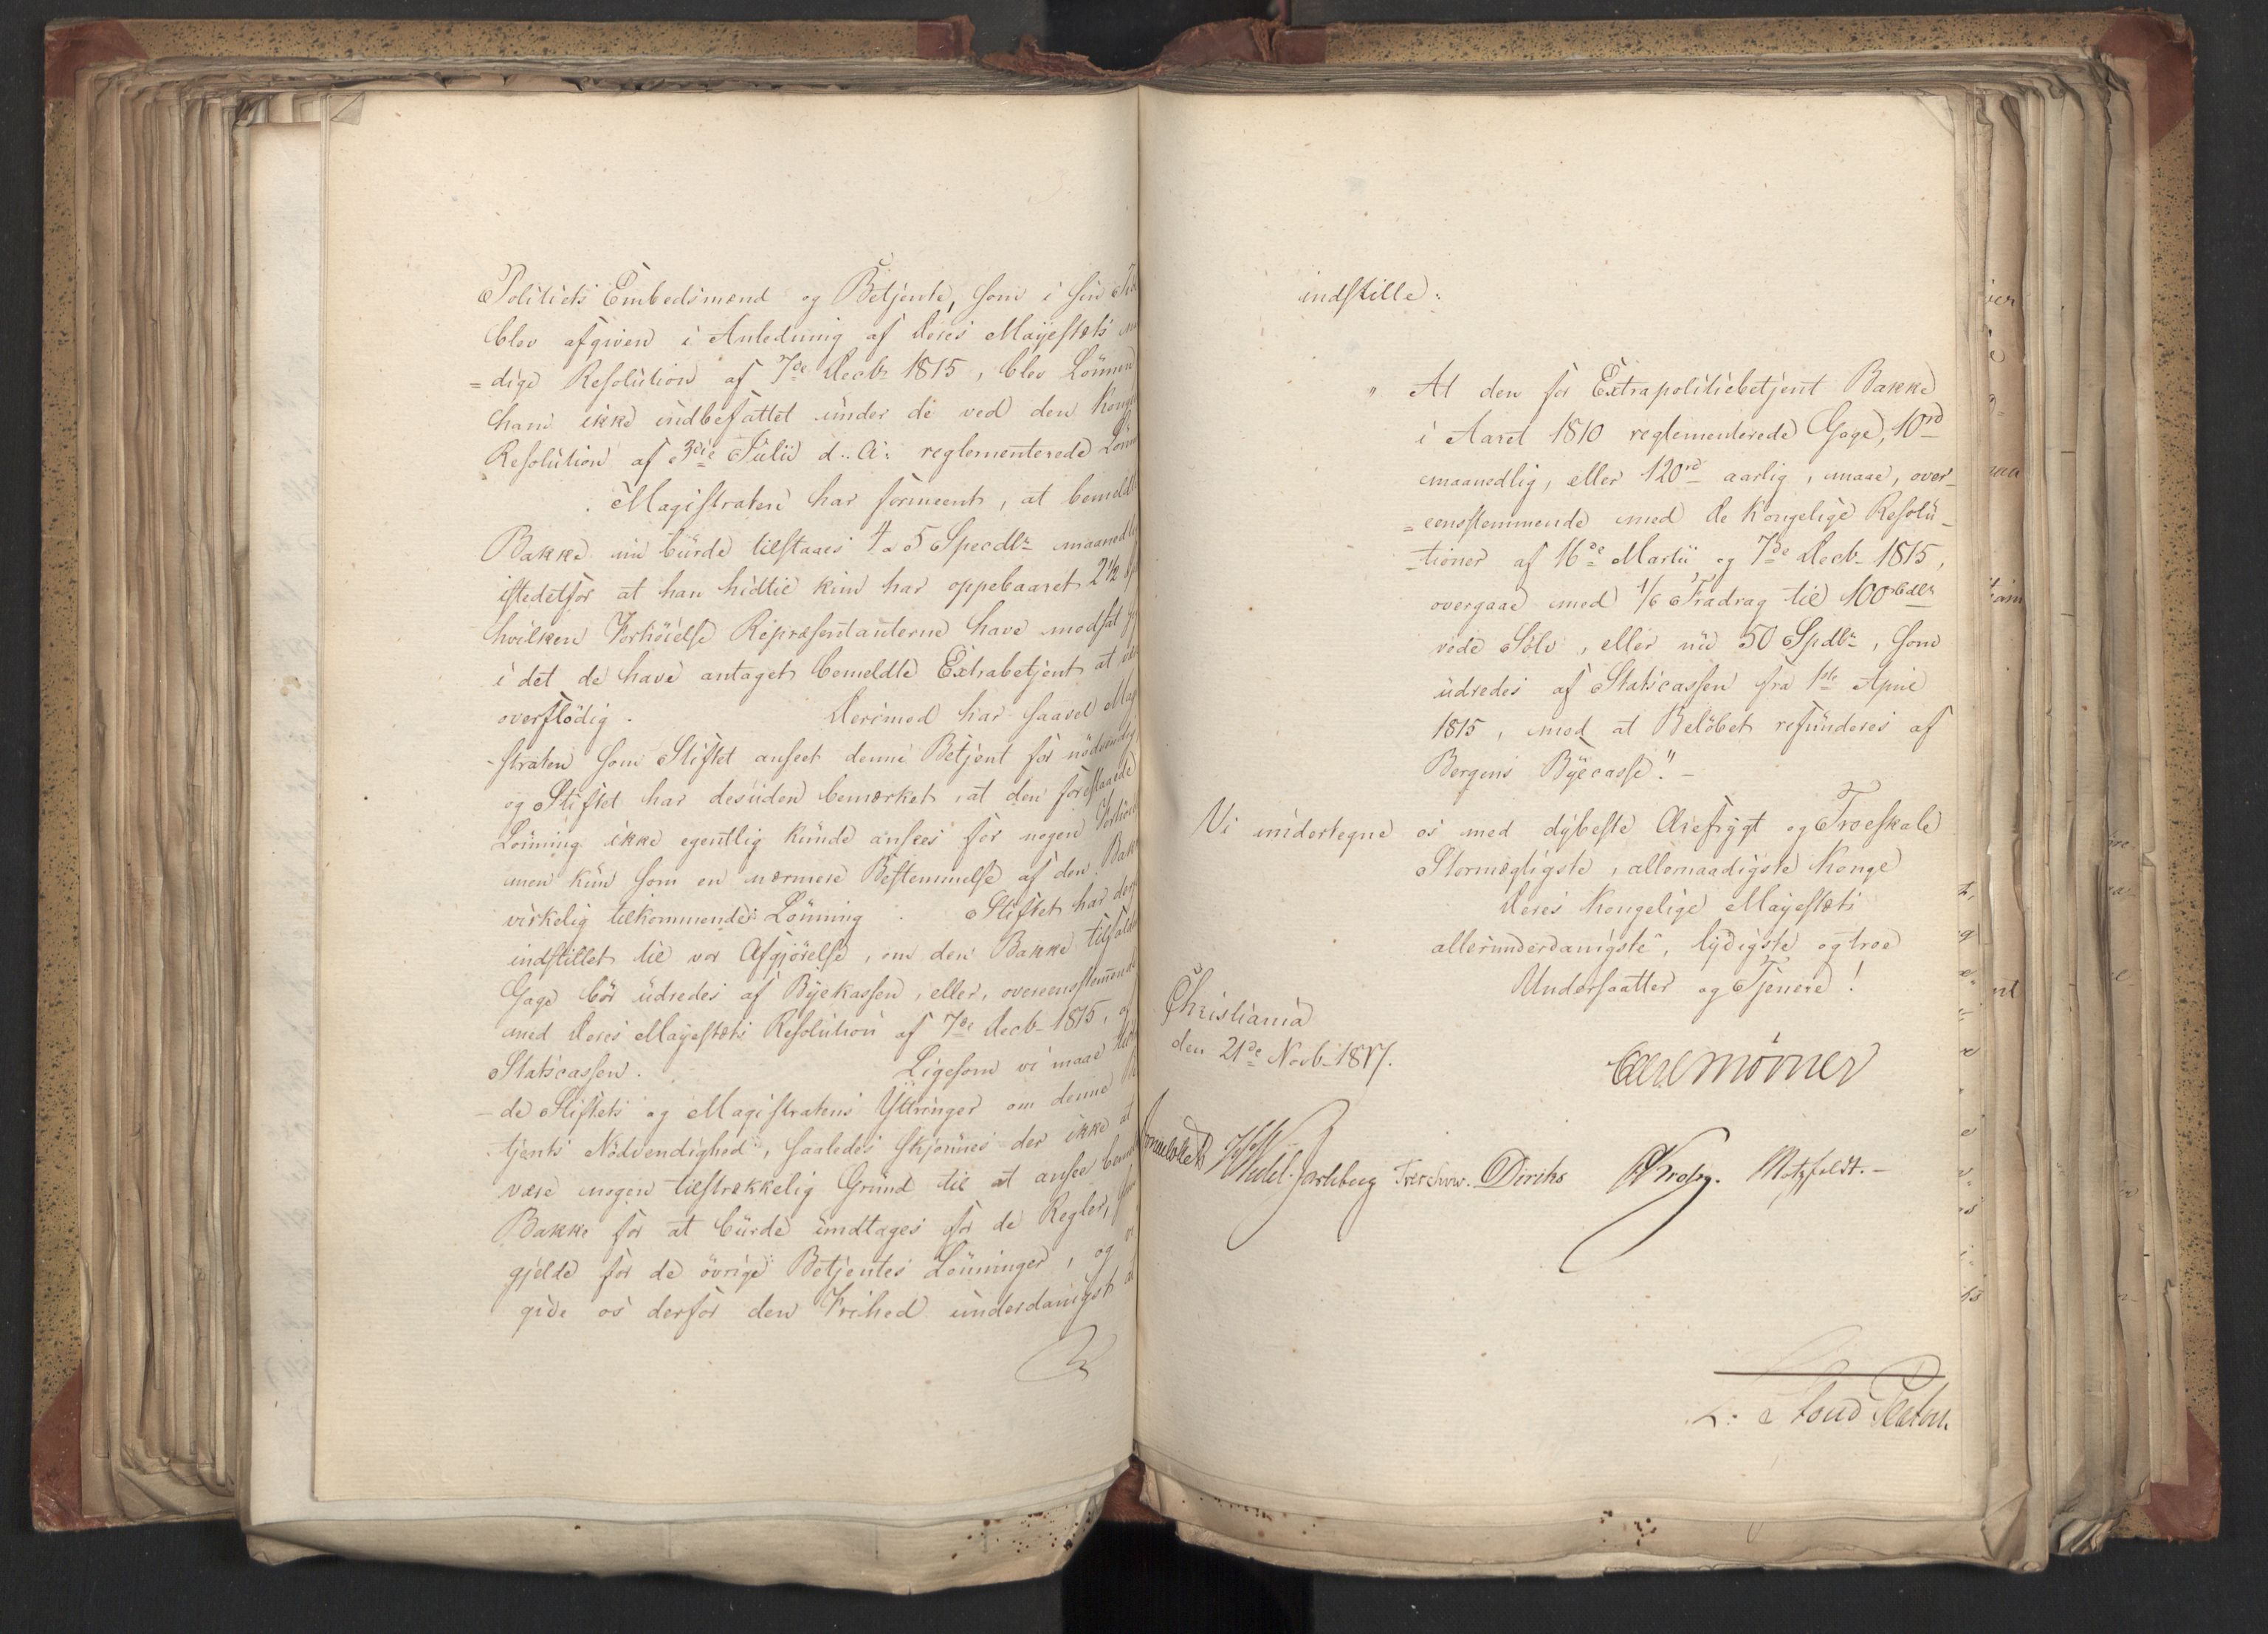 Politiets Embedsmænd og Betjente, som i sin Tid
blev afgiven i Anledning af Deres Majestæts
=dige Resolution af 7de Decbr 1815, blev Lønnen
ham ikke indbefattet under de ved den Konge
Resolution af 3die Julii d. A. reglementerede Lønn
Magistraten har formeent, at bemeldte
Bakke nu burde tilstaaes 4 a 5 Specdlr maanedlig
istedetfor at han hidtil kun har oppebaaret 2½
hvilken Forhøielse Repræsentanterne have modsat
i det de have antaget bemeldte Extrabetjent at
overflødig. Derimod har saavel Mag
-straten som Stiftet anseet denne Betjent for nødvendig
og Stiftet har desuden bemærket, at den forestaaede
Lønning ikke egentlig kunde ansees for nogen Forhøiel
men kun som en nærmere Bestemmelse af den Bakke
virkelig tilkommende Lønning. Stiftet har der
indstillet til vor Afgjørelse, om den Bakke tilfaldne
Gage bør udredes af Byekassen, eller, overensstemmende
med Deres Majestæts Resolution af 7de Decbr 1815, af
Statscassen. Ligesom vi maae
-de Stiftets og Magistratens Yttringer om denne
-tjents Nødvendighed, saaledes skjønnes der ikke at
være nogen tilstrækkelig Grund til at ansee bemeldte
Bakke for at burde undtages for de Regler, som
gjelde for de øvrige Betjentes Lønninger, og vi
give os derfor den Frihed underdanigst at
indstille:
" At den for Extrapolitiebetjent Bakke
i Aaret 1810 reglementerede Gage, 10 rd
maanedlig, eller 120 rd aarlig, maae, over-
=eensstemmende med de Kongelige Resolu-
-tioner af 16de Martii og 7de Decbr 1815,
overgaae med 1/6 Fradrag til 100 rbdlr
rede Sølv, eller nu 50 Spdlr, som
udredes af Statscassen fra 1ste April
1815, mod at Beløbet refunderes af
Bergens Byecasse." -
Vi undertegne os med dybeste Ærefrygt og Troeskab
Stormægtigste, allernaadigste Konge
Deres Kongelige Majestæts
allerunderdanigste, lydigste og troe
Undersaatter og Tjenere!
Christiania
den 21de Novbr 1817.
Carl Mörner
Sommerhielm HWedel-Jarlsberg Treschow. Diriks Krohg. Motzfeldt. -